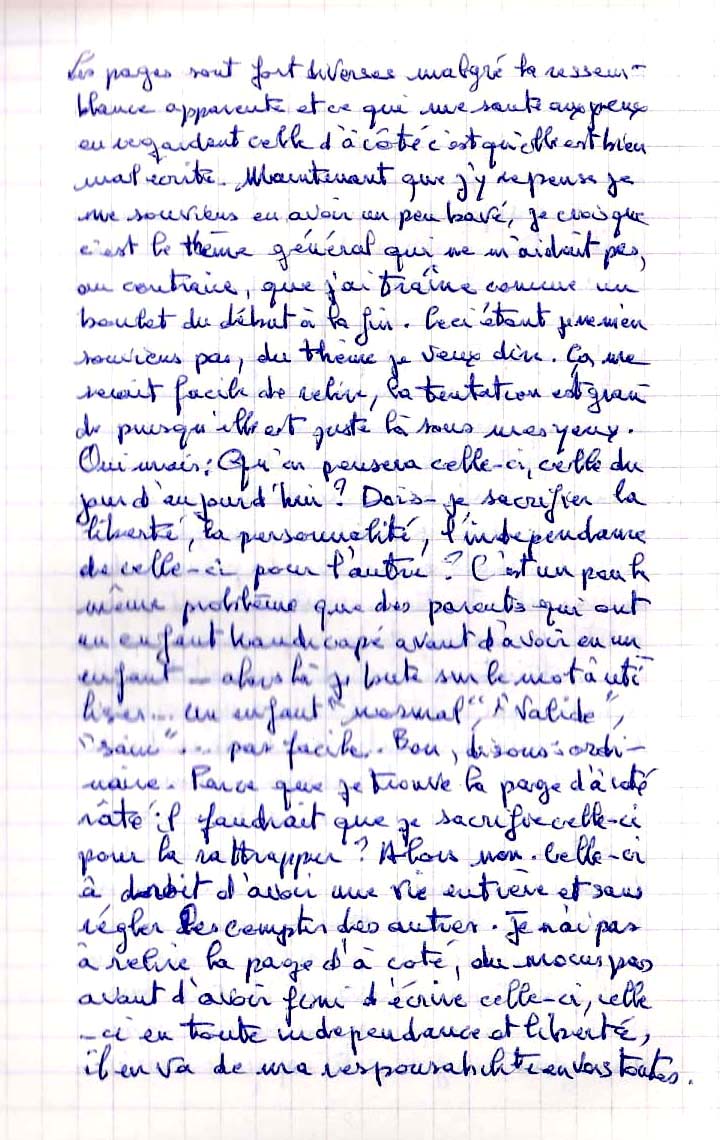 Les pages sont fort diverses malgré la ressem-
blance apparente et ce qui me saute aux yeux
en regardant celle d'à côté c'est qu'elle est bien
mal écrite. Maintenant que j'y repense je
me souviens en avoir un peu bavé, je crois que
c'est le thème général qui ne m'aidait pas,
au contraire, que j'ai traîné comme un
boulet du début à la fin. Ceci étant je ne m'en
souviens pas, du thème je veux dire. Ça me
serait facile de relire, la tentation est gran
de puisqu'elle est juste là sous mes yeux.
Oui mais: Qu'en pensera celle-ci, celle du
jour d'aujourd'hui? Dois-je sacrifier la
liberté, la personnalité, l'indépendance
de celle-ci pour l'autre? C'est un peu le
même problème que des parents qui ont
un enfant handicapé avant d'avoir eu un
enfant - alors là je bute sur le mot à uti
liser... un enfant "normal", "valide",
"sain"... pas facile. Bon, disons ordi-
naire. Parce que je trouve la page d'à côté
râté il faudrait que je sacrifie celle-ci
pour la rattrapper? Alors non. Celle-ci
à droit d'avoir une vie entière et sans
régler les comptes des autres. Je n'ai pas
à relire la page d'à coté, du moins pas
avant d'avoir fini d'écrire celle-ci, celle
-ci en toute indépendance et liberté,
il en va de ma responsabilité envers toutes.